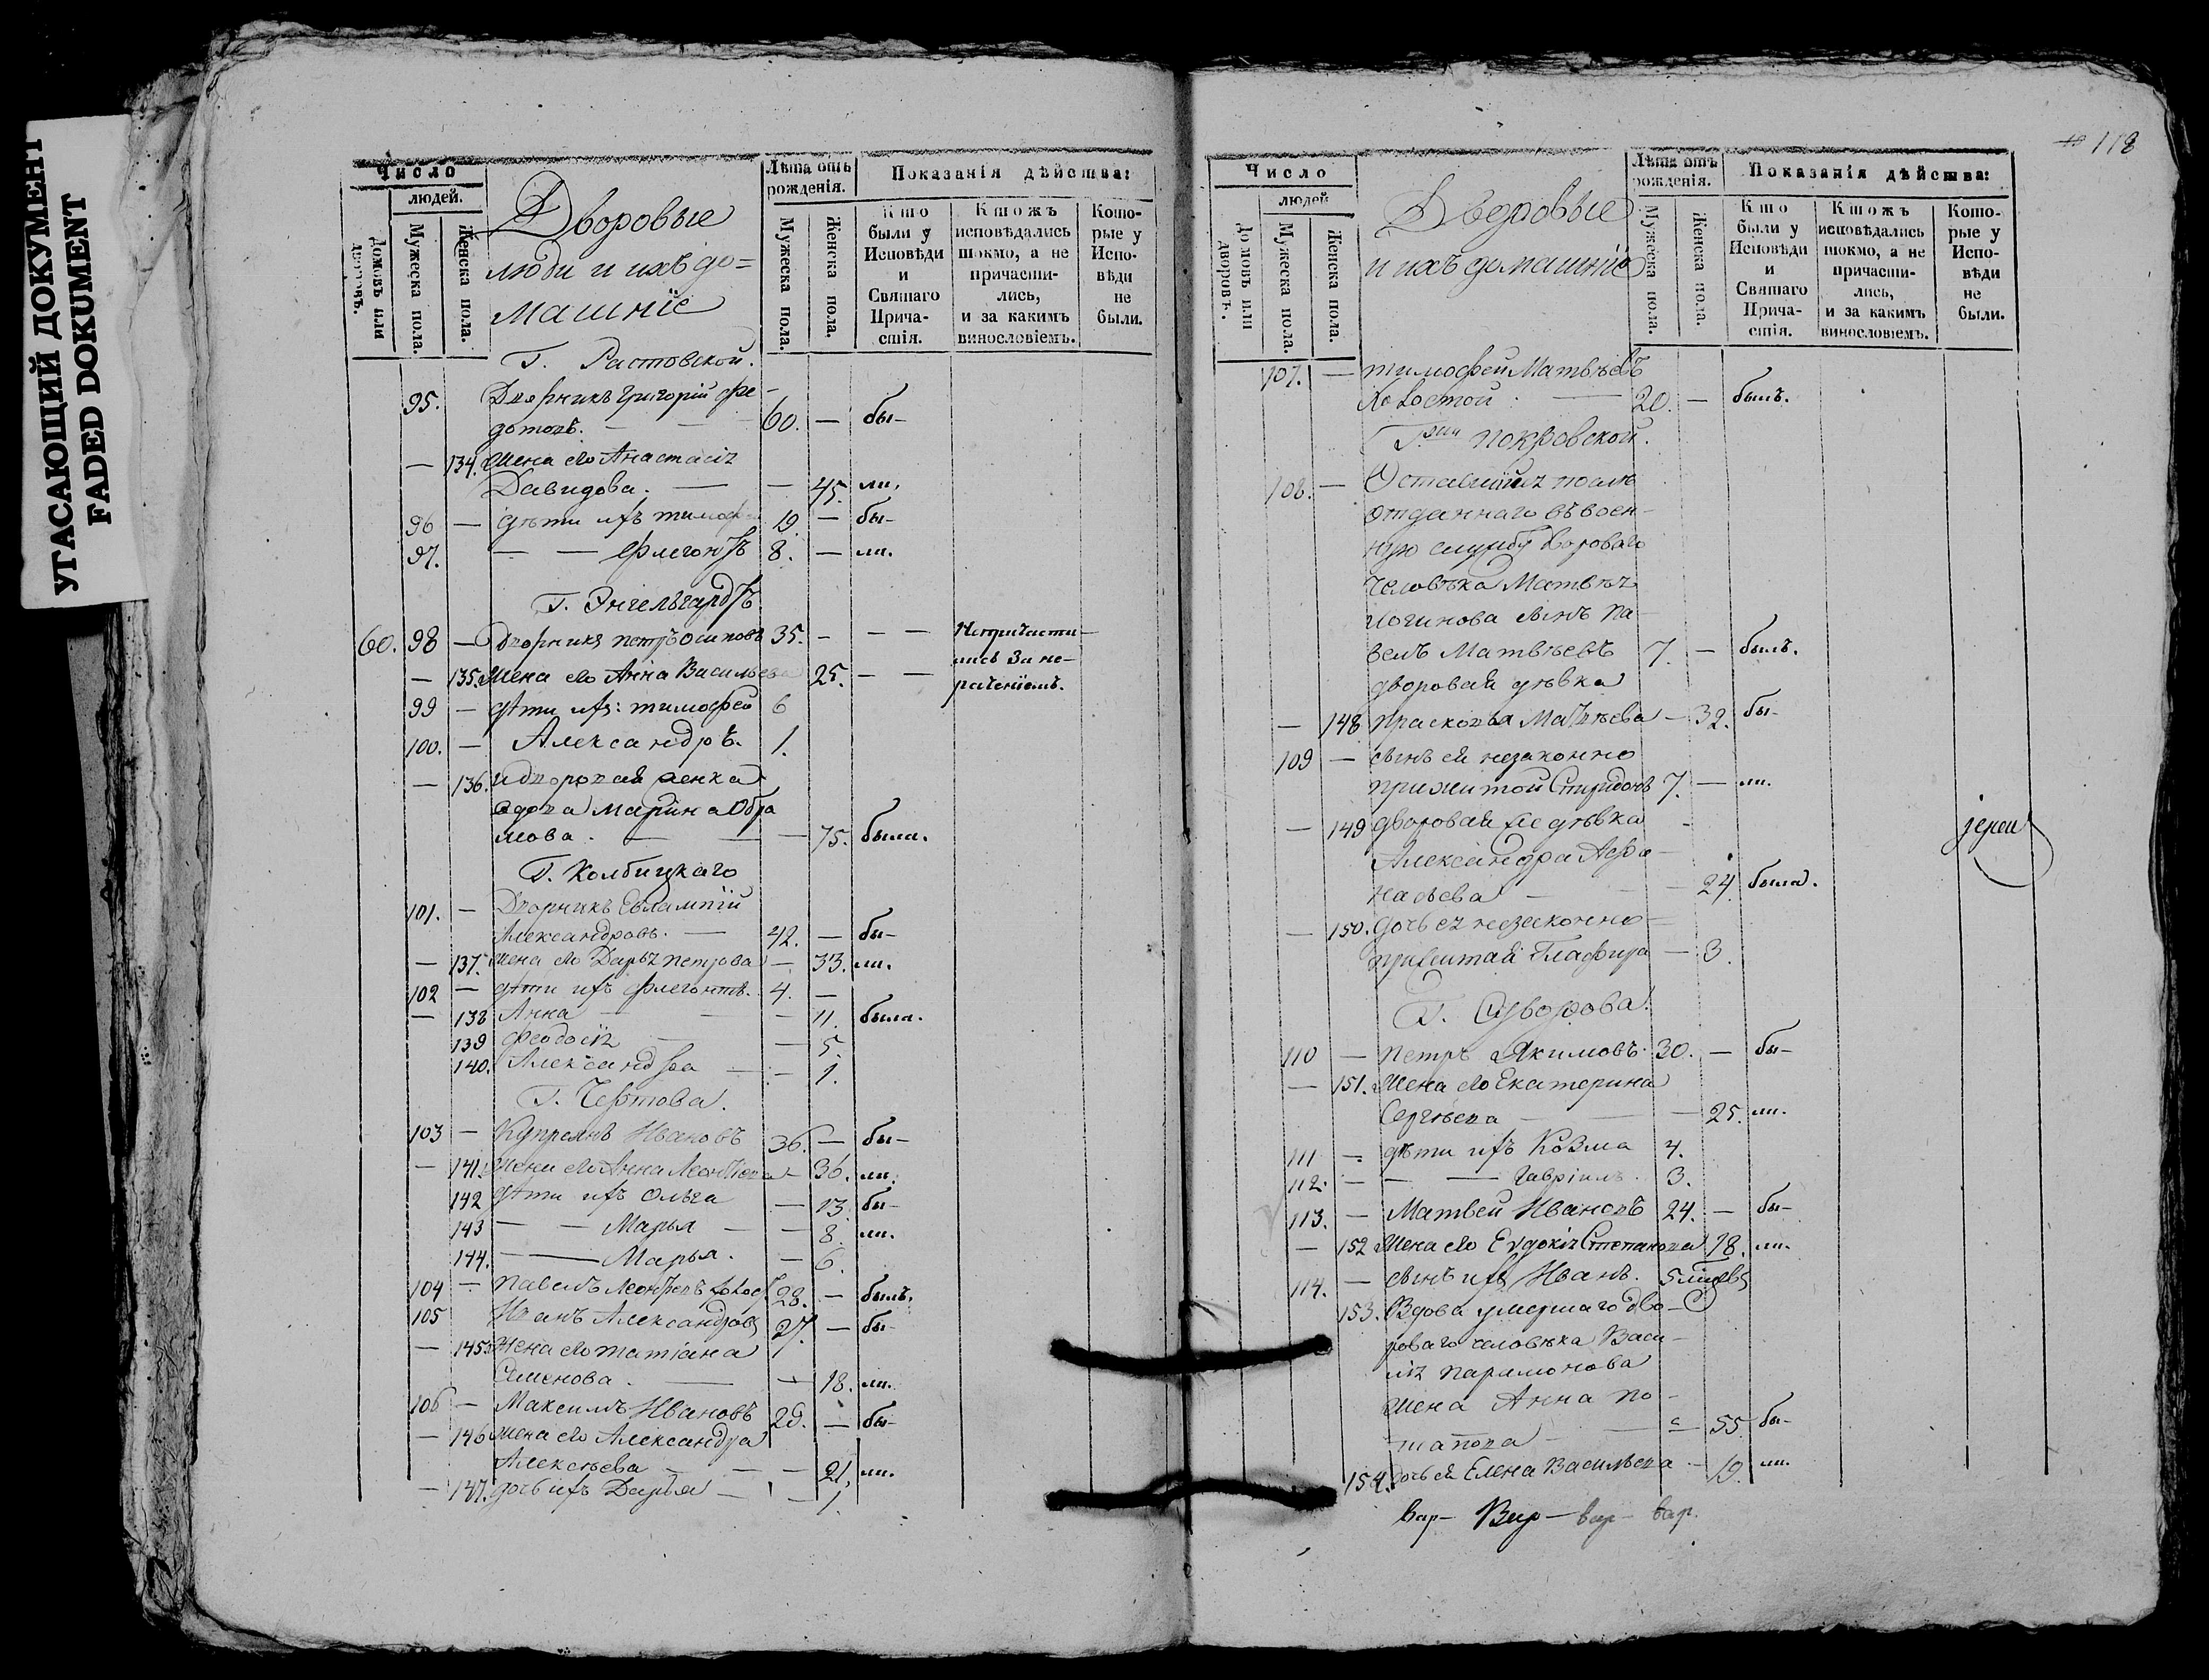 УГАСАЮЩИЙ ДОКУМЕНТ
FADED DOKUMENT
Число
людей.
Домовъ или дворовъ.
Мужеска пола.
Женска пола.
Дворовые
люди и ихъ до=
машнїе
Лѣта отъ рожденія.
Мужеска пола.
Женска пола.
Показанія дѣйства:
Кто были у Исповѣди и Святаго Прича-стія.
Ктожъ исповѣдались токмо, а не причасти-лись, и за какимъ винословіемъ.
Кото-рые у Испо-вѣди не были.
Г. Растовской.
95. Дворникъ Григорій Фе-
дотовъ. — 60. — бы-
— 134. Жена его Анастасія
Давидова. — — 45. ли.
96 — дѣти ихъ Тимофей 19. — бы-
97. — — Флегонтъ 8. — ли.
Г. Энгельгардтъ
60. 98 — Дворникъ Петръ Осиповъ 35. — — — Непричасти-
лись за не-
— 135. Жена его Анна Васильева 25. — — раченїемъ.
99 — дѣти ихъ: Тимофей 6
100. — Александръ. 1.
— 136. и дворовая женка
вдова Марина Обра
мова. — — 75. была.
Г. Колбицкаго
101. — Дворникъ Евлампій
Александровъ. — 42. — бы-
— 137. Жена его Дарья Петрова — 33. ли.
102 — дѣти ихъ Флегонтъ. 4. —
— 138 Анна — — 11. была.
139 Феодосїя — — 5.
140. Александра — — 1.
Г. Чертова.
103 — Купреянъ Ивановъ 36. — бы-
— 141. Жена его Анна Леонтьева — 36. ли.
142 дѣти ихъ Ольга — 13. бы-
143 — — Марья — — 8. ли.
144. — — Марья. — 6.
104 — Павелъ Леонтьевъ холос. 28. — былъ.
105 Иванъ Александровъ 27. — бы-
— 145. Жена его Татіана
Семенова. — — 18. ли.
106 — Максимъ Ивановъ 29. — бы-
— 146 Жена его Александра
Алексѣева — — 21. ли.
— 147. дочь ихъ Дарья — — 1.
118
Число
людей
Домовъ или дворовъ.
Мужеска пола.
Женска пола.
Дворовые
и ихъ домашнїе
Лѣта отъ рожденія.
Мужеска пола.
Женска пола.
Показанія дѣйства:
Кто были у Исповѣди и Святаго Прича-стія.
Ктожъ исповѣдались токмо, а не причасти-лись, и за какимъ винословіемъ.
Кото-рые у Испо-вѣди не были.
107. — Тимофей Матвѣевъ
Холостой. — 20. — былъ.
Гжи Покровской.
108. — Оставшійся послѣ
отданнаго въ воен-
ную службу двороваго
человѣка Матвѣя
Логинова сынъ Па-
велъ Матвѣевъ 7. — былъ.
дворовая дѣвка
— 148 Прасковья Матвѣева — 32. бы-
109 — сынъ ея незаконно
прижитой Спиридонъ 7. — ли.
— 149 дворовая же дѣвка
Александра Афа-
насьева — — 24. была.
— 150. дочь ея незаконно-
прижитая Глафира — 3.
іереи
Г. Суворова.
110 — Петръ Якимовъ. 30. — бы-
— 151. Жена его Екатерина
Сергѣева — — 25. ли.
111 — дѣти ихъ Козма 4.
112. — — Гавріилъ. 3.
113. — Матвей Ивановъ 24. — бы-
— 152 Жена его Евдокія Степанова 18. ли.
114. — сынъ ихъ Иванъ.
153. Вдова умершаго дво-
роваго человѣка Васи-
лія Парамонова
жена Анна По-
тапова — — 55 бы-
154. дочь ея Елена Васильева — 19. ли.
вар- Вар- вар- вар.